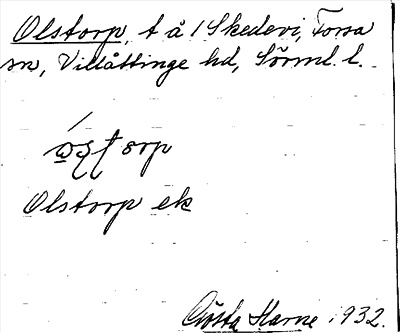 Olstorp, t å /Skedevi, Forssa
sn, Villåttinge hd, Sörml. l.
orp
Olstorp ek
Gösta Harne 1932.